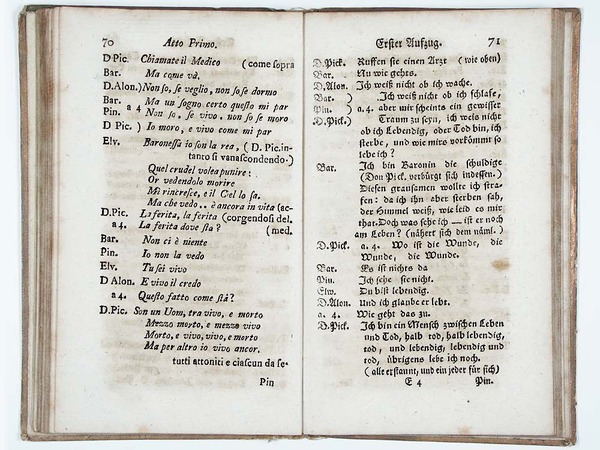 70 Atto Primo.
D Pic. Chiamate il Medico (come sopra
Bar. Ma come và.
D.Alon.) Non so, se veglio, non so se dormo
Bar. Ma un sogno certo questo mi par
Pin. a 4 Non so, se vivo, non so se moro
D Pic. ) Io moro, e vivo come mi par
Elv. Baronessa io son la rea, ( D. Pic. in-
tanto si va nascondendo.)
Quel crudel volea punire:
Or vedendolo morire
Mi rincresce, e il Ciel lo sa.
Ma che vedo .. è ancora in vita (ac-
D.Pic. La ferita, la ferita (corgendosi del.
a 4. La ferita dove sta? (med.
Bar. Non ci è niente
Pin. Io non la vedo
Elv. Tu sei vivo
D Alon. E vivo il credo
a 4. Questo fatto come stà?
D.Pic. Son un Uom, tra vivo, e morto
Mezzo morto, e mezzo vivo
Morto, e vivo, vivo, e morto
Ma per altro io vivo ancor.
tutti attoniti e ciascun da se-
Pin
Erster Aufzug. 71
D.Pick. Ruffen sie einen Arzt (wie oben)
Bar. Nu wie gehts.
D.Alon. Ich weiß nicht ob ich wache.
Bar. ) Ich weiß nicht ob ich schlafe,
Pin. ) a. 4. aber mir scheints ein gewisser
D.Pick.) Traum zu seyn, ich weis nicht
ob ich Lebendig, oder Tod bin, ich
sterbe, und wie mirs vorkömmt so
lebe ich?
Bar. Ich bin Baronin die schuldige
(Don Pick. verbürgt sich indessen.)
Diesen grausamen wollte ich stra-
fen: da ich ihn aber sterben sah,
der Himmel weiß, wie leid es mir
that. Doch was sehe ich — ist er noch
am Leben? (nähert sich dem näml.)
D.Pick. a. 4. Wo ist die Wunde, die
Wunde, die Wunde.
Bar. Es ist nichts da
Pin. Ich sehe sie nicht.
Elw. Du bist lebendig.
D.Alon. Und ich glaube er lebt.
a. 4. Wie geht das zu.
D.Pick. Ich bin ein Mensch zwischen Leben
und Tod, halb tod, halb lebendig,
tod, und lebendig, lebendig und
tod, übrigens lebe ich noch.
(alle erstaunt, und ein jeder für sich)
E 4 Pin.